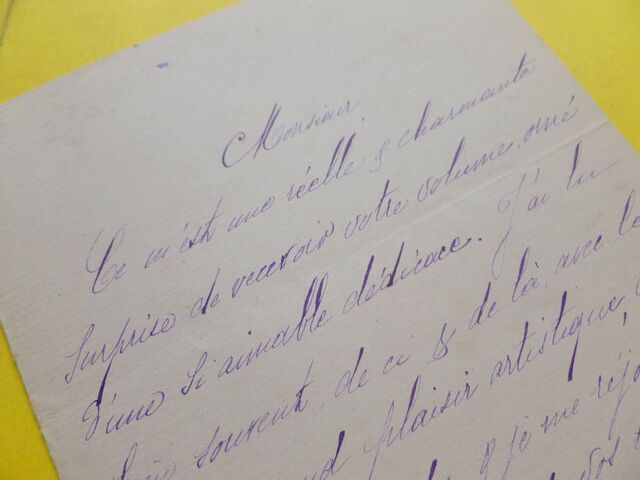 Monsieur
Ce m'est une réelle & charmante
surprise de recevoir votre volume, orné
d'une si aimable dédicace. J'ai lu
souvent, de ci & de là, avec le
plaisir artistique,
& je me réjo
vos